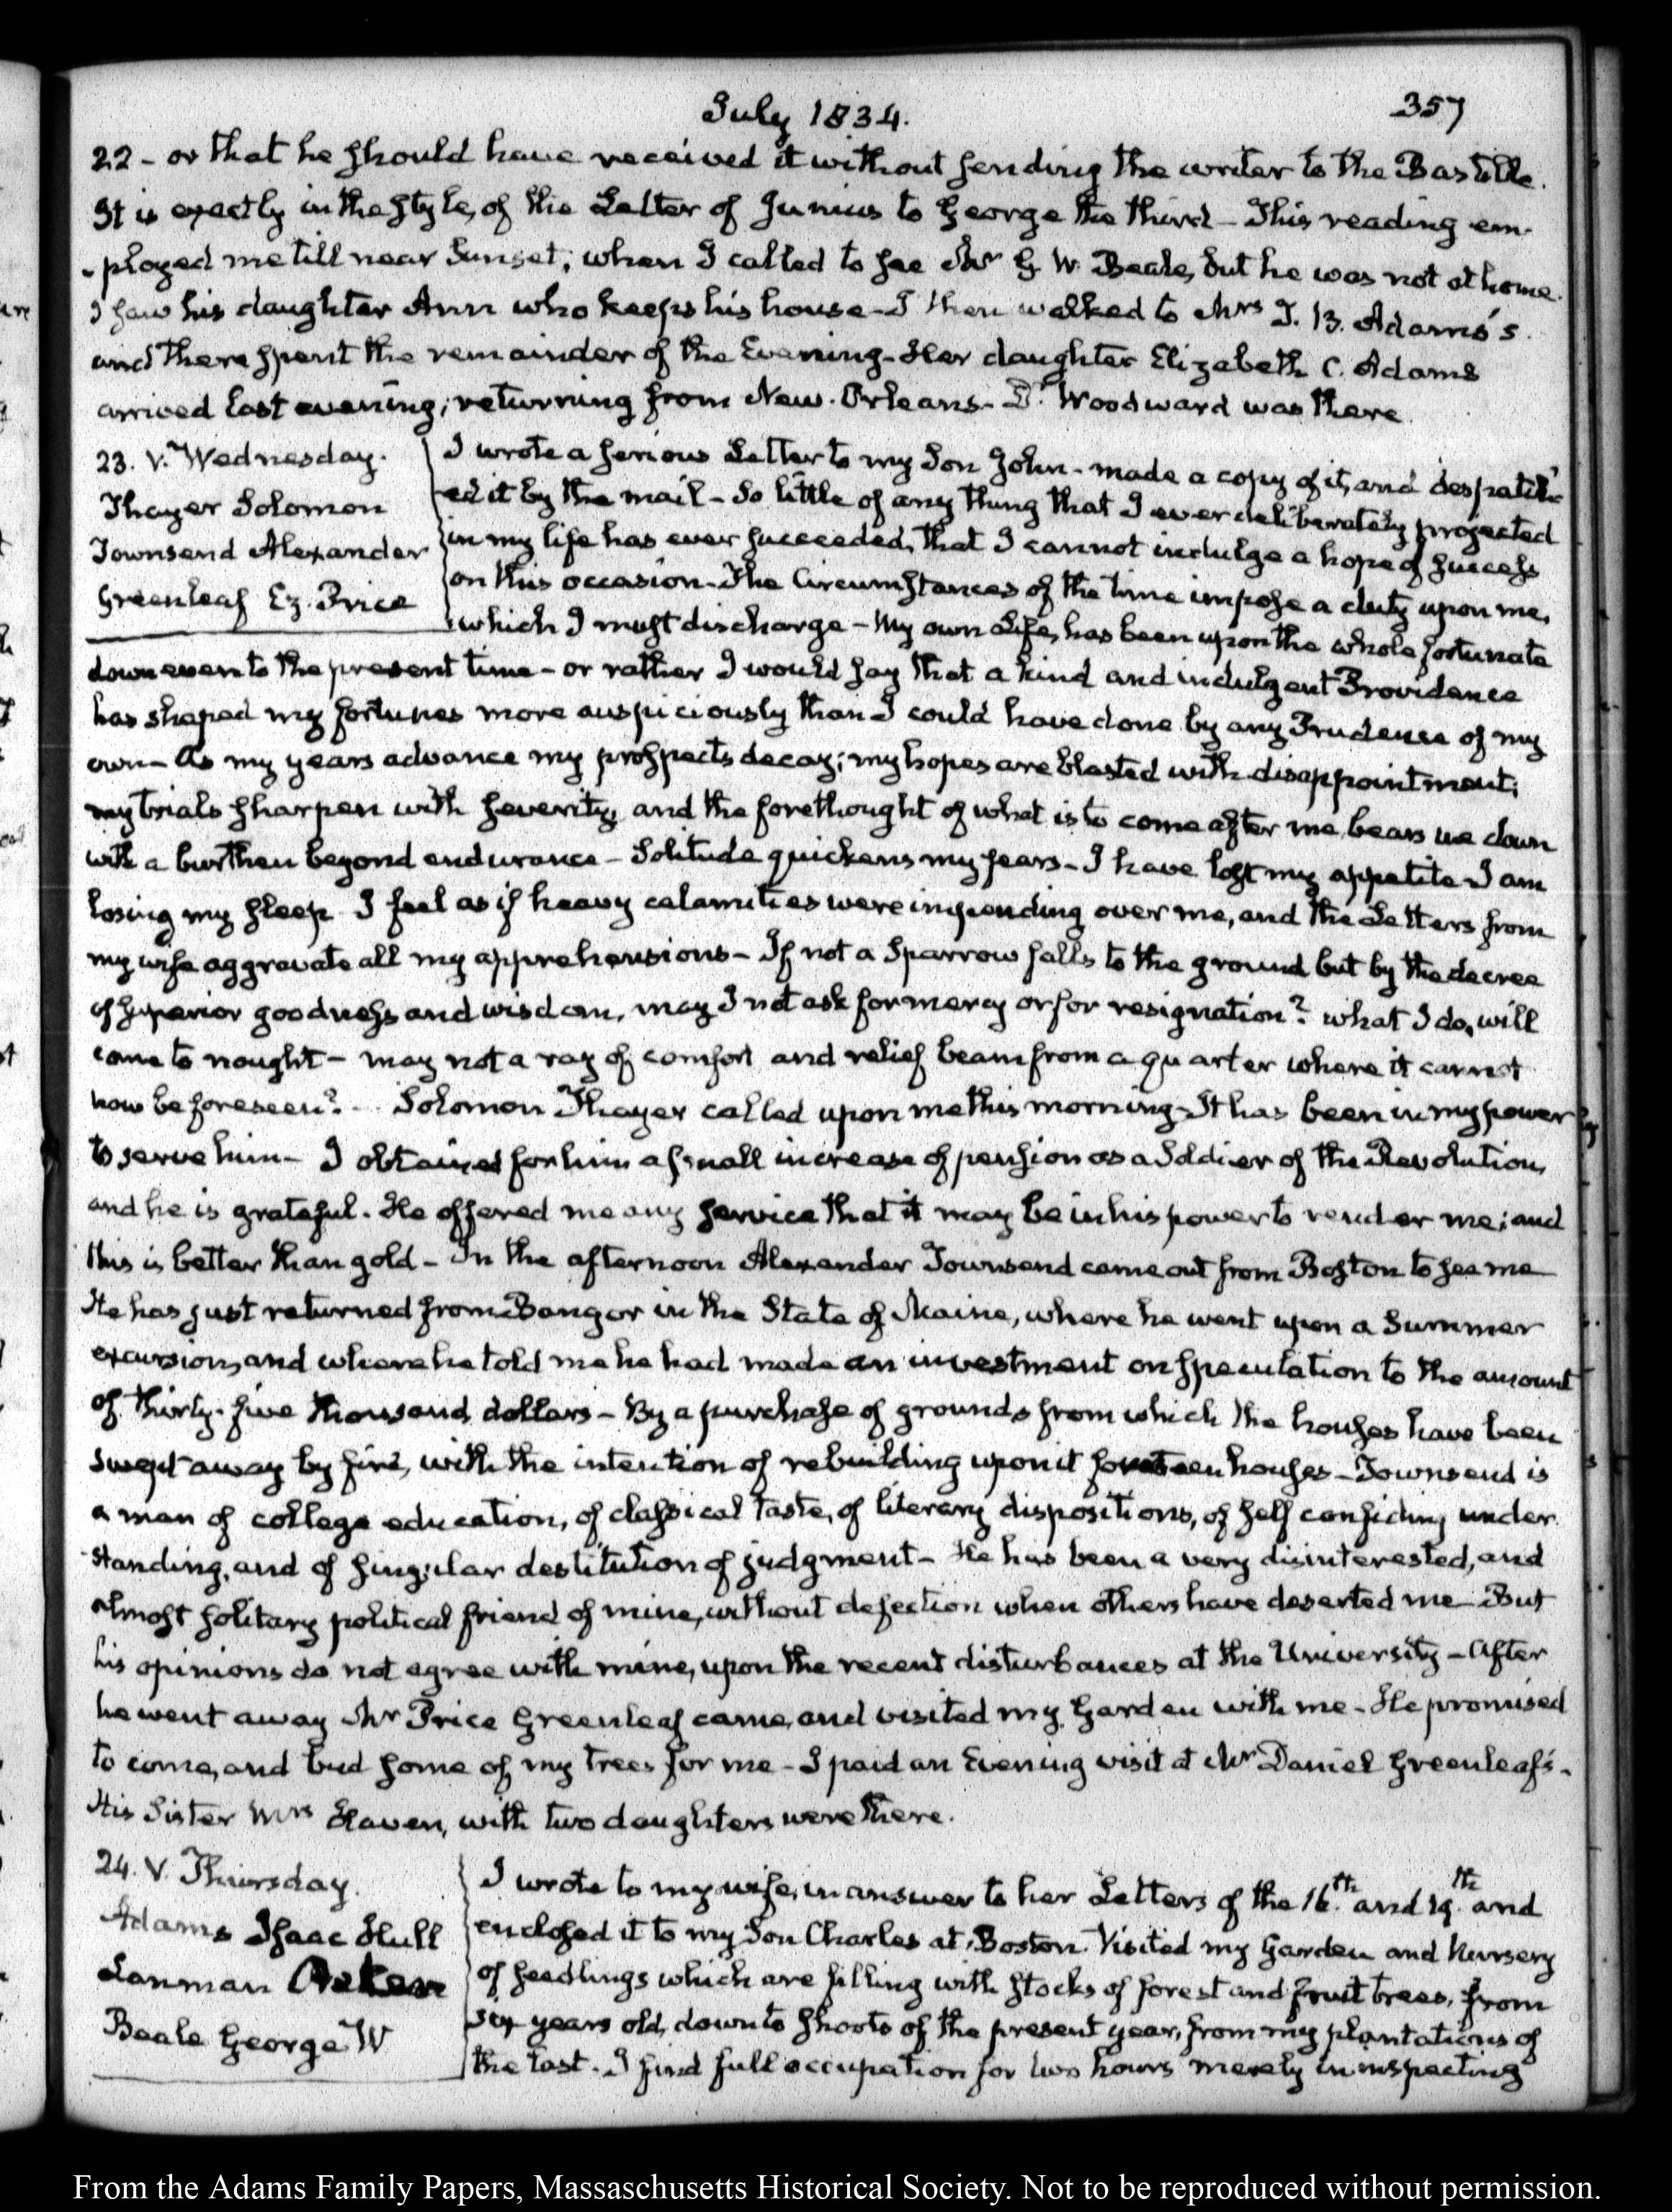 July 1834.
357
22 - or that he should have received it without sending the writer to the Bastille.
It is exactly in the style, of the Letter of Junius to George the third - This reading em-
-ployed me till near Sunset; when I called to see Mr G. W. Beale, but he was not at home.
I saw his daughter Ann who keeps his house - I then walked to Mrs T. B. Adams's.
and there spent the remainder of the Evening - Her daughter Elizabeth C. Adams
arrived last evening; returning from New-Orleans - Dr. Woodward was there.
23. V. Wednesday.
Thayer Solomon
Townsend Alexander
Greenleaf Ez. Price
I wrote a serious Letter to my Son John - made a copy of it, and despatch
ed it by the mail - So little of any thing that I ever deliberately projected
in my life has ever succeeded, that I cannot indulge a hope of success
on this occasion - The Circumstances of the time impose a duty upon me,
which I must discharge - My own Life, has been upon the whole fortunate
down even to the present time - or rather I would say that a kind and indulgent Providence
has shaped my fortunes more auspiciously than I could have done by any Prudence of my
own - As my years advance my prospects decay; my hopes are blasted with disappointment;
my trials sharpen with severity, and the forethought of what is to come after me, bears me down
with a burthen beyond endurance - Solitude quickens my fears - I have lost my appetite I am
losing my sleep I feel as if heavy calamities were impending over me, and the Letters from
my wife aggravate all my apprehensions - If not a Sparrow falls to the ground but by the decree
of superior goodness and wisdom, may I not ask for mercy or for resignation? what I do, will
come to nought - may not a ray of comfort and relief beam from a quarter where it cannot
now be foreseen? - Solomon Thayer called upon me this morning - It has been in my power
to serve him - I obtained for him a small increase of pension as a Soldier of the Revolution,
and he is grateful. He offered me any service that it may be in his power to render me; and
this is better than gold - In the afternoon Alexander Townsend came out from Boston to see me
He has just returned from Bangor in the State of Maine, where he went upon a Summer
excursion, and where he told me he had made an investment on speculation to the amount
of thirty-five thousand dollars - By a purchase of grounds from which the houses have been
swept away by fire, with the intention of rebuilding upon it fourteen houses - Townsend is
a man of college education, of classical taste, of literary dispositions, of self confiding under
-standing, and of singular destitution of judgment - He has been a very disinterested, and
almost solitary political friend of mine, without defection when others have deserted me - But
his opinions do not agree with mine, upon the recent disturbances at the University - After
he went away Mr Price Greenleaf came, and visited my Garden with me - He promised
to come, and bud some of my trees for me - I paid an Evening visit at Mr Daniel Greenleaf's -
His Sister Mrs Haven, with two daughters were there.
24. V. Thursday.
Adams Isaac Hull
Lanman
Beale George W
I wrote to my wife, in answer to her Letters of the 16th. and 19th. and
enclosed it to my Son Charles at Boston. Visited my Garden and Nursery
of seedlings which are filling with stocks of forest and fruit trees, from
six years old, down to shoots of the present year, from my plantations of
the last. I find full occupation for two hours merely in inspecting
From the Adams Family Papers, Massachusetts Historical Society. Not to be reproduced without permission.